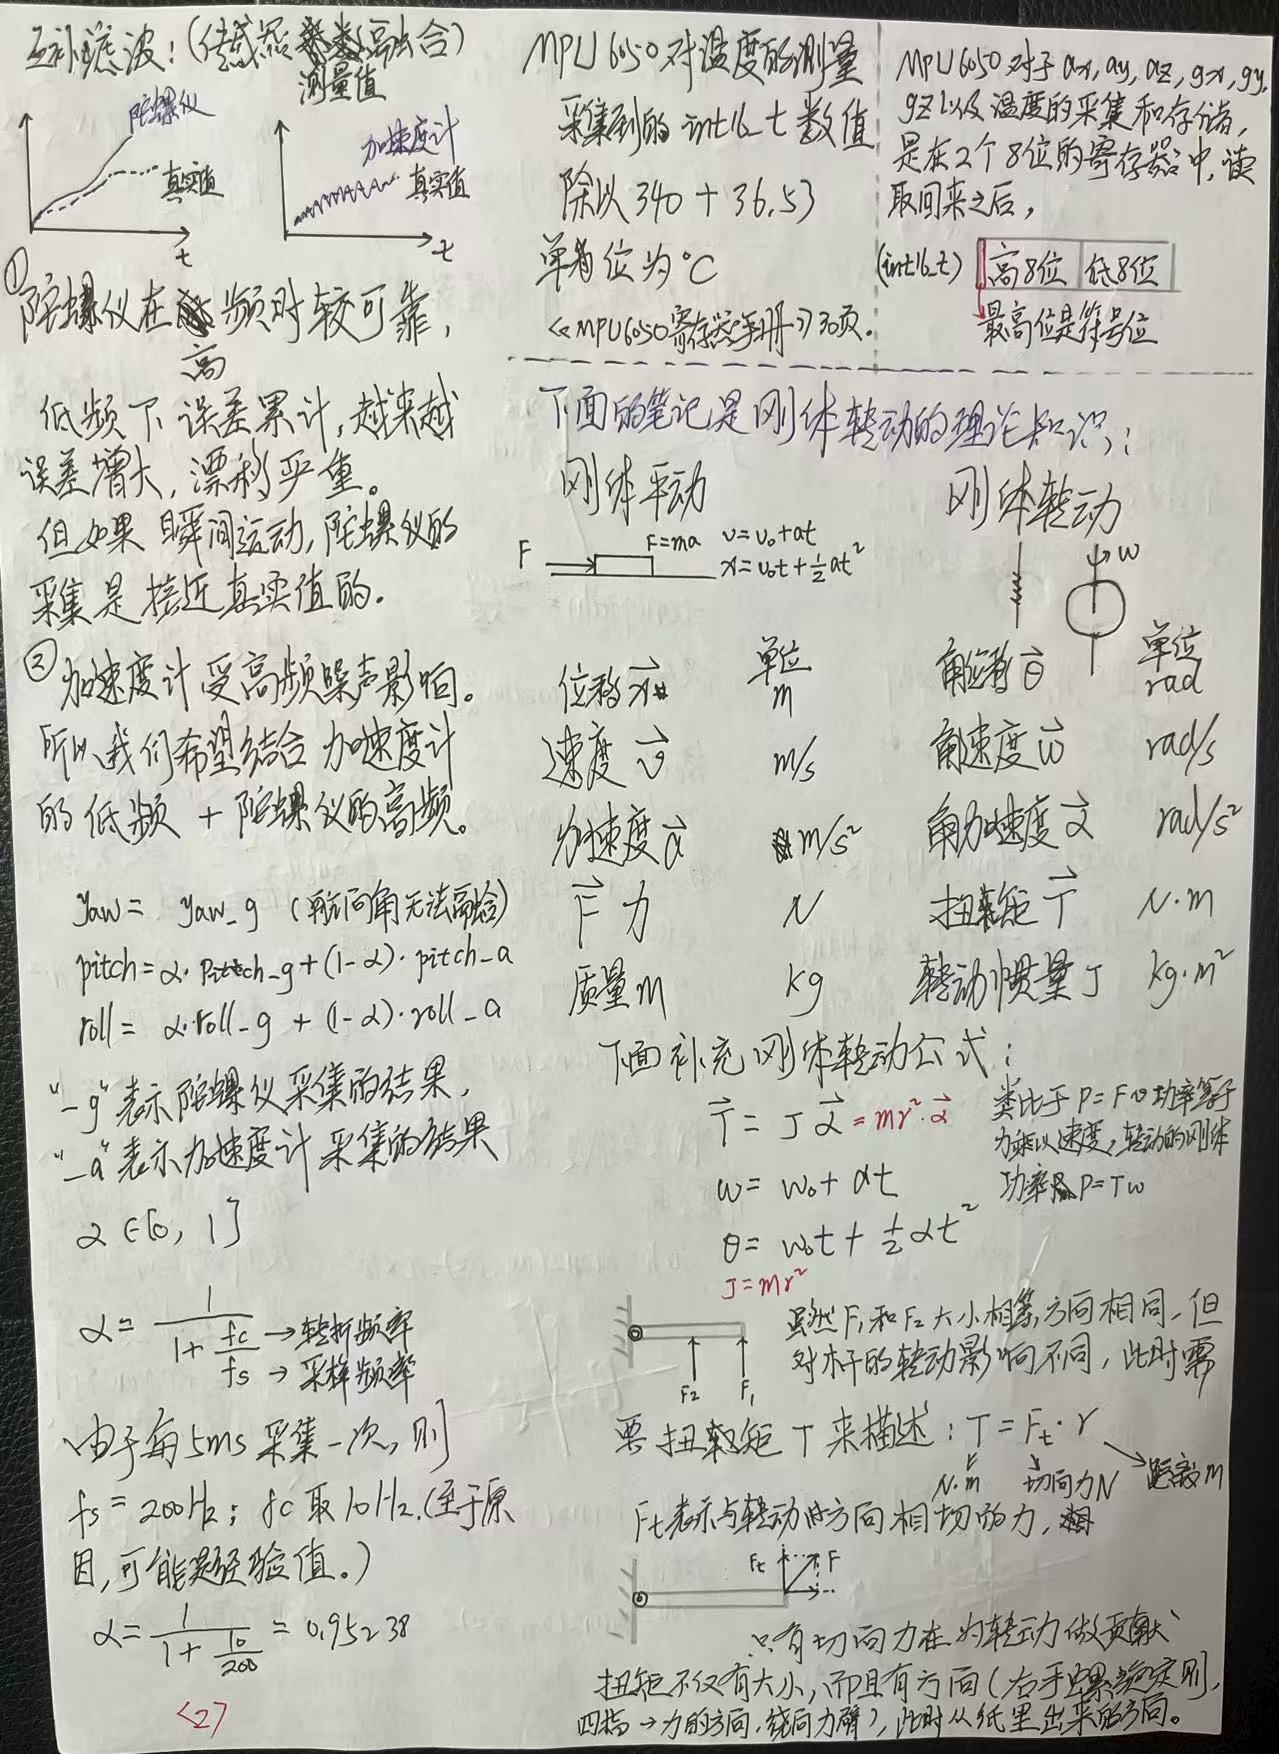 互补滤波：(传感器融合)
测量值
陀螺仪
真实值
t
加速度计
真实值
t
① 陀螺仪在高频时较可靠，
低频下误差累计，越来越
误差增大，漂移严重。
但如果瞬间运动，陀螺仪的
采集是接近真实值的．
② 加速度计受高频噪声影响。
所以我们希望结合加速度计
的低频 + 陀螺仪的高频。
yaw = yaw_g (航向角无法融合)
pitch = α·pitch_g + (1-α)·pitch_a
roll = α·roll_g + (1-α)·roll_a
“_g”表示陀螺仪采集的结果，
“_a”表示加速度计采集的结果
α∈[0, 1]
α = 1/(1 + fc/fs)
→转折频率
→采样频率
由于每5ms采集一次，则
fs = 200Hz；fc取10Hz．(至于原
因，可能是经验值。)
α = 1/(1 + 10/200) = 0.95238
<2>
MPU6050对温度的测量
采集到的int16_t数值
除以340 + 36.53
单位为℃
《MPU6050寄存器手册》30页．
MPU6050对于ax, ay, az, gx, gy,
gz以及温度的采集和存储，
是在2个8位的寄存器中，读
取回来之后，
(int16_t) 高8位 低8位
最高位是符号位
下面的笔记是刚体转动的理论知识：
刚体平动 刚体转动
F F=ma v=v₀+at
x=v₀t+½at²
w
单位 单位
位移x⃗ m 角位移θ⃗ rad
速度v⃗ m/s 角速度w⃗ rad/s
加速度a⃗ m/s² 角加速度α⃗ rad/s²
F⃗ 力 N 扭矩T⃗ N·m
质量m kg 转动惯量J kg·m²
下面补充刚体转动公式：
T⃗ = Jα⃗ = mr²·α⃗
w = w₀ + αt
θ = w₀t + ½αt²
J = mr²
类比于P=Fv功率等于
力乘以速度，转动的刚体
功率P=Tw
F₂ F₁
虽然F₁和F₂大小相等，方向相同，但
对木干的转动影响不同，此时需
要扭矩T来描述：T = Ft·r
N·m 切向力N 距离m
Ft表示与转动方向相切的力，
Ft F
只有切向力在为转动做贡献
扭矩不仅有大小，而且有方向(右手螺旋定则，
四指→力的方向，绕向力臂)，此时从纸里出来的方向。